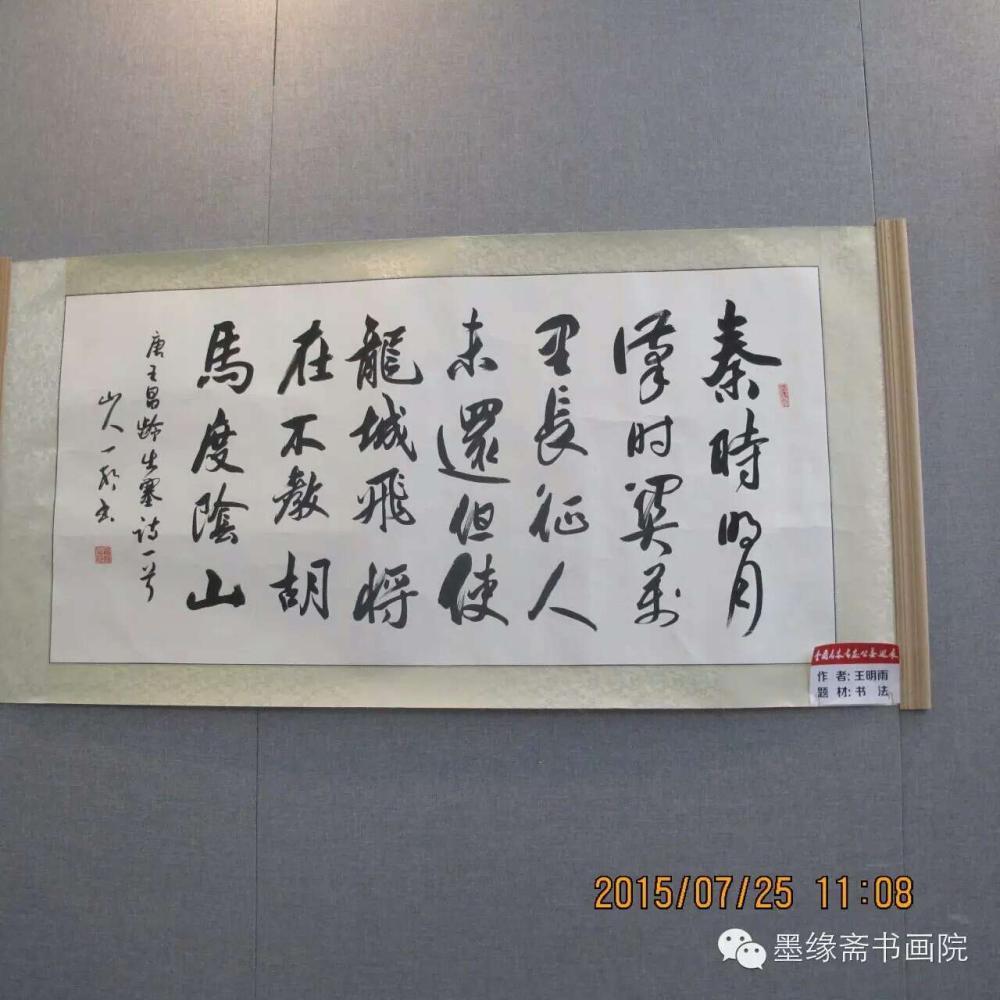 秦時明月
漢时関萬
里長征人
未還但使
龍城飛将
在不教胡
馬度陰山
唐王昌龄出塞诗一首
山人一书
全国名家书画公益巡展
作 者:王明雨
题 材:书 法
2015/07/25 11:08
墨缘斋书画院